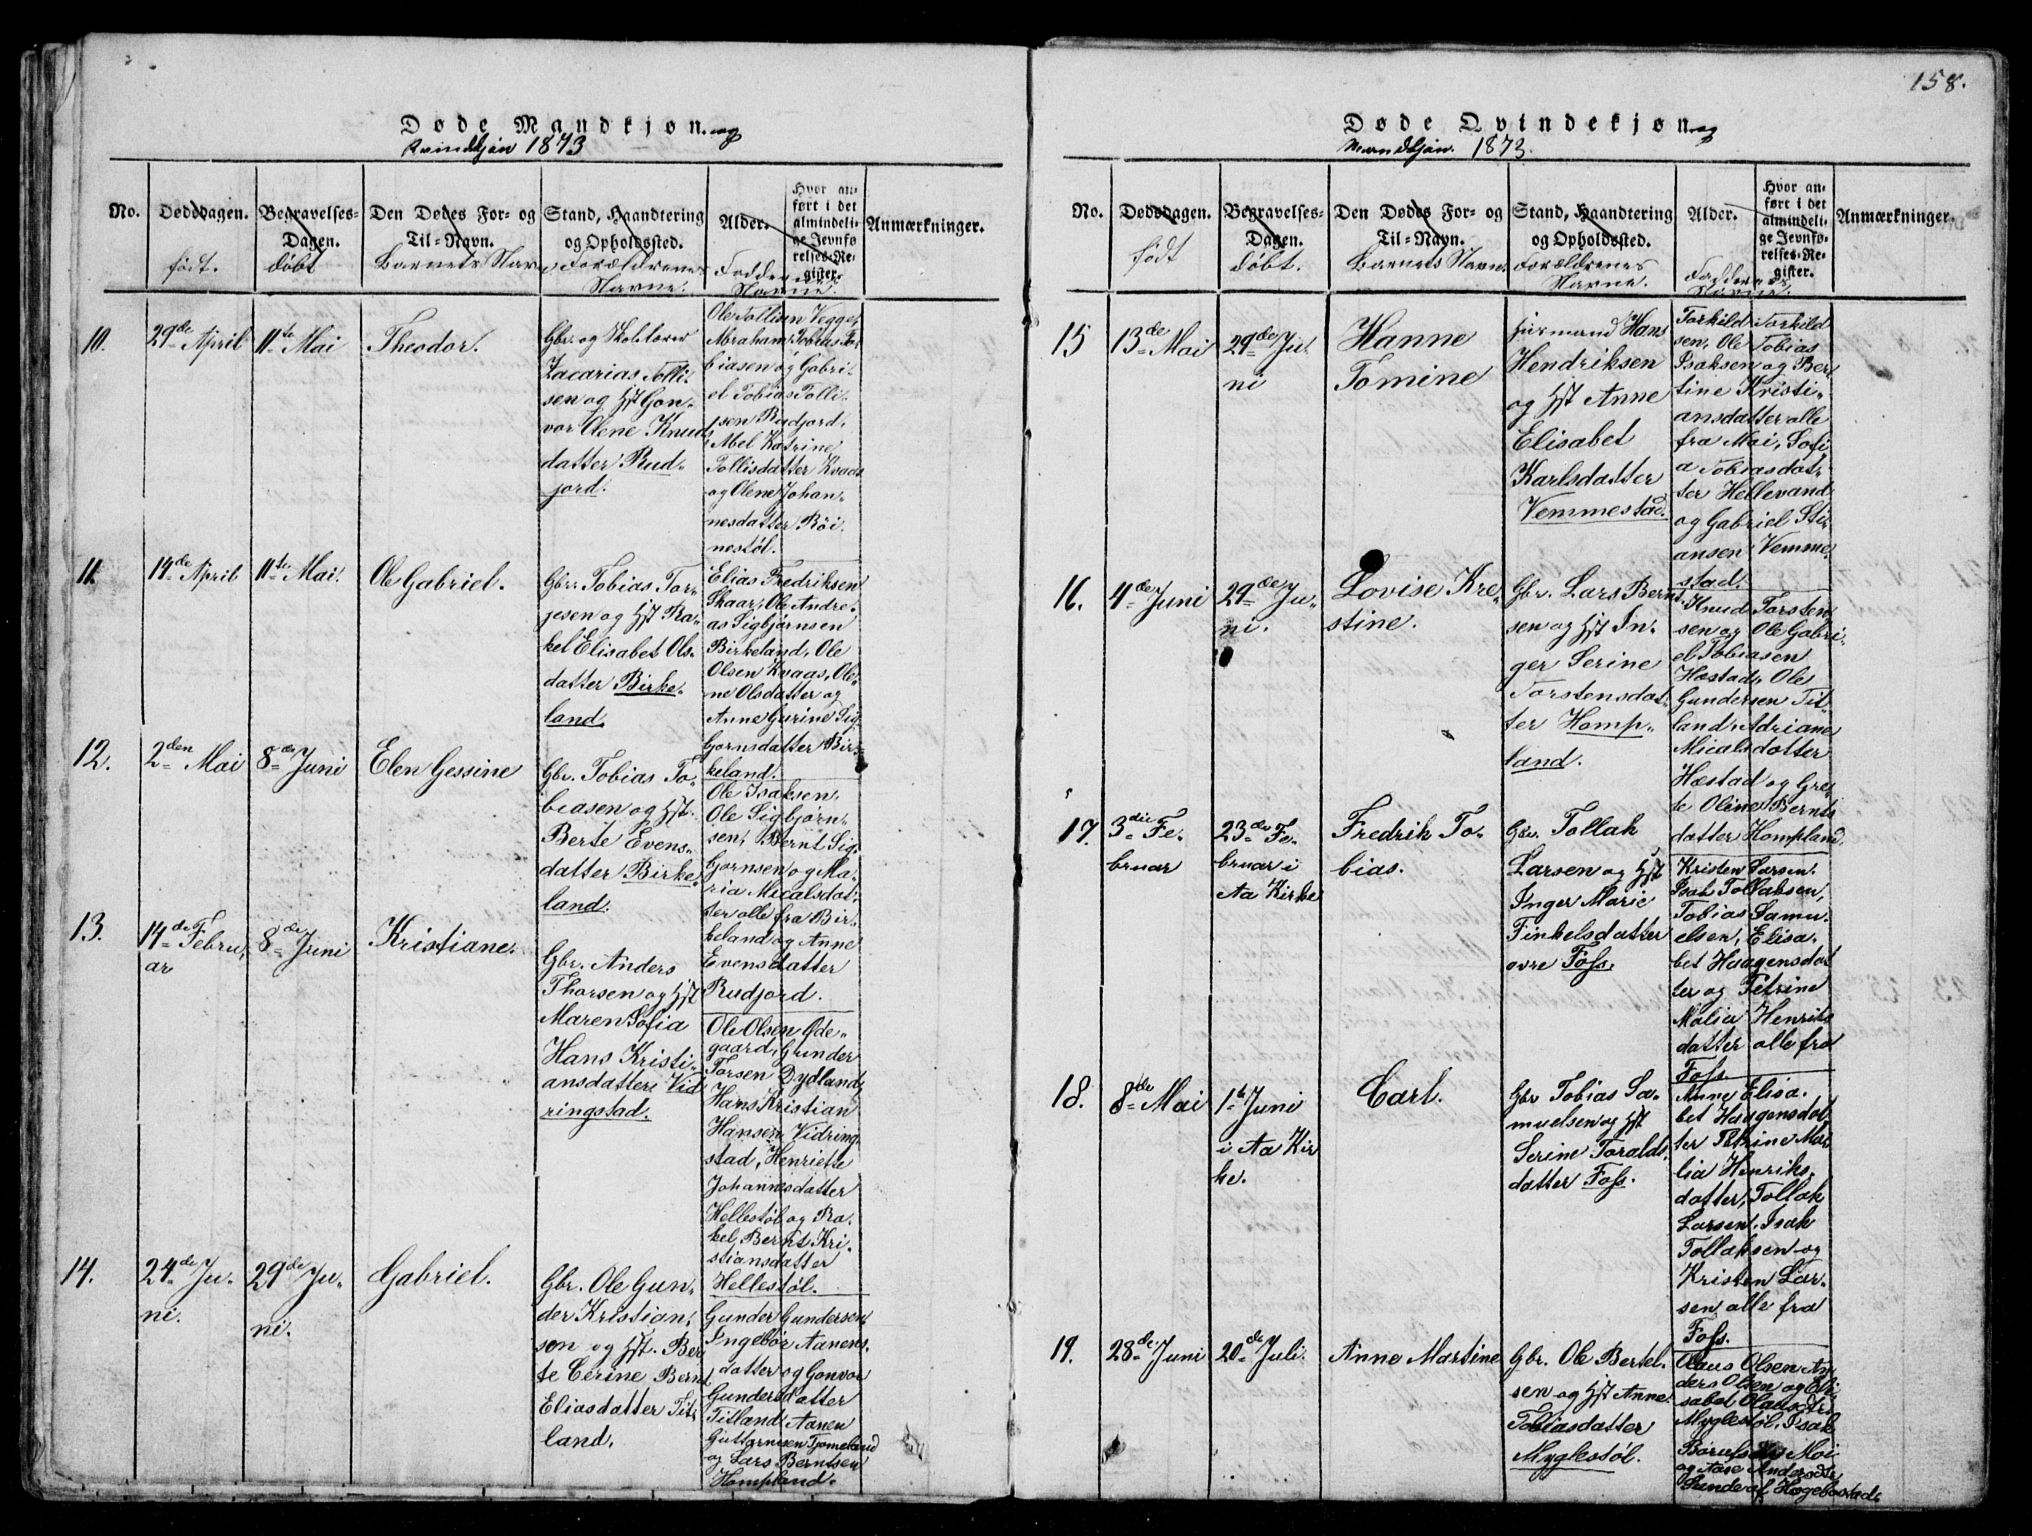 158.
Døde Mandkjøn. og
Kvindkjøn 1873
No.
Dødsdagen.
født.
Begravelses-
Dagen.
døbt
Den Dødes For- og
Til-Navn.
Barnets Navn
Stand, Haandtering
og Opholdssted.
Forældrenes
Navne.
Alder.
Faddernes
Navne.
Hvor an-
ført i det
almindeli-
ge Jevnfø-
relses-Re-
gister.
Anmærkninger.
10.
29de April
11te Mai
Theodor.
Gbr. og Skolelærer
Zacarias Tolli-
sen og Hst Gon-
vor Olene Knuds
datter Rud-
jord.
Ole Tollisen Vegge,
Abraham Tobias To-
biasen og Gabri-
el Tobias Tolli-
sen Rudjord,
Abel Katrine
Tollisdatter Kvaas
og Olene Johan-
nesdatter Röi-
nestøl.
11.
14de April
11te Mai.
Ole Gabriel.
Gbr. Tobias Tor-
jesen og Hst Ra-
kel Elisabet Ols-
datter Birke-
land.
Elias Fredriksen
Skaar, Ole Andre-
as Sigbjørnsen
Birkeland, Ole
Olsen Kvaas, Ole-
ne Olsdatter og
Anne Gurine Sig-
bjornsdatter Bir-
keland.
12.
2den Mai
8de Juni
Elen Gessine
Gbr. Tobias To-
biasen og Hst.
Berte Evens-
datter Birke-
land.
Ole Isaksen,
Ole Sigbjørn-
sen, Bernt Sig-
bjornsen og Ma-
ria Micalsdat-
ter alle fra Bir-
keland og Anne
Evensdatter
Rudjord.
13.
14de Febru-
ar
8de Juni
Kristiane.
Gbr. Anders
Thorsen og Hst
Maren Sofia
Hans Kristi-
ansdatter Vid-
ringstad.
Ole Olsen Øde-
gaard, Gunder
Torsen Dydland,
Hans Kristian
Hansen Vidring-
stad, Henriette
Johannesdatter
Hellestøl og Ra-
kel Bernt Kri-
stiansdatter
Hellestøl.
14.
24de Ju-
ni.
29de Ju-
ni.
Gabriel.
Gbr. Ole Gun-
der Kristian-
sen og Hst. Ber-
te Cerine Bernt
Eliasdatter Tit-
land.
Gunder Gundersen,
Ingebor Aanens-
datter og Gonvor
Gundersdatter
Titland, Aanen
Guttormsen Tjomeland
og Lars Berntsen
Hompland.
Døde Qvindekjøn og
Mandkjøn. 1873.
No.
Dødsdagen.
født
Begravelses-
Dagen.
døbt.
Den Dødes For- og
Til-Navn.
Barnets Navn.
Stand, Haandtering
og Opholdssted.
Forældrenes
Navne.
Alder.
Faddernes
Navne.
Hvor an-
ført i det
almindeli-
ge Jevnfø-
relses-Re-
gister.
Anmærkninger.
15
13de Mai
29de Ju-
ni
Hanne
Tomine
furmand Hans
Hendriksen
og Hst Anne
Elisabet
Karlsdatter
Vemmestad.
Torkild Torkild-
sen, Ole Tobias
Isaksen og Ber-
tine Kristi-
ansdatter alle
fra Moi, Sofi-
a Tobiasdat-
ter Hellevand
og Gabriel Sti-
ansen Vemme-
stad.
16.
4de Juni
29de Ju-
ni.
Lovise Kre-
stine.
Gbr. Lars Bernt-
sen og Hst In-
ger Serine
Torstensdat-
ter Homp-
land.
Knud Torsten-
sen og Ole Gabri-
el Tobiasen
Hæstad, Ole
Gundersen Tit-
land, Adriane
Micalsdatter
Hæstad og Gre-
te Oline Bernts-
datter Hompland.
17.
3die Fe-
bruar
23de Fe-
bruar i
Aa Kirke
Fredrik To-
bias.
Gbr. Tollak
Larsen og Hst
Inger Marie
Finkelsdatter
ovre Foss.
Kristen Larsen,
Isak Tollaksen,
Tobias Samu-
elsen, Elisa-
bet Haagensdat
ter og Petrine
Malia Henriks
datter alle fra
Foss
18.
8de Mai
1ste Juni
i Aa Kir
ke.
Carl.
Gbr Tobias Sa-
muelsen og Hst
Serine Toralds-
datter Foss.
Anne Elisa-
bet Haagensdat
ter Petrine Ma-
lia Henriks-
datter, Tollak
Larsen, Isak
Tollaksen og
Kristen Lar-
sen alle fra
Foss.
19.
28de Juni
20de Juli.
Anne Martine
Gbr. Ole Bertel-
sen og Hst Anne
Tobiasdatter
Myglestøl.
Olaus Olsen An-
ders Olsen og Eli-
sabet
Myglestøl, Isak
Moi
og Aase Andersdtr
Hægebostad.